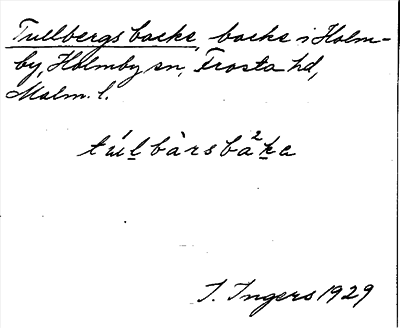 Tullbergs backe, backe i Holm-
by, Holmby sn, Frosta hd,
Malm. l.
túl̲bàrsbà²k̲a
I. Ingers 1929